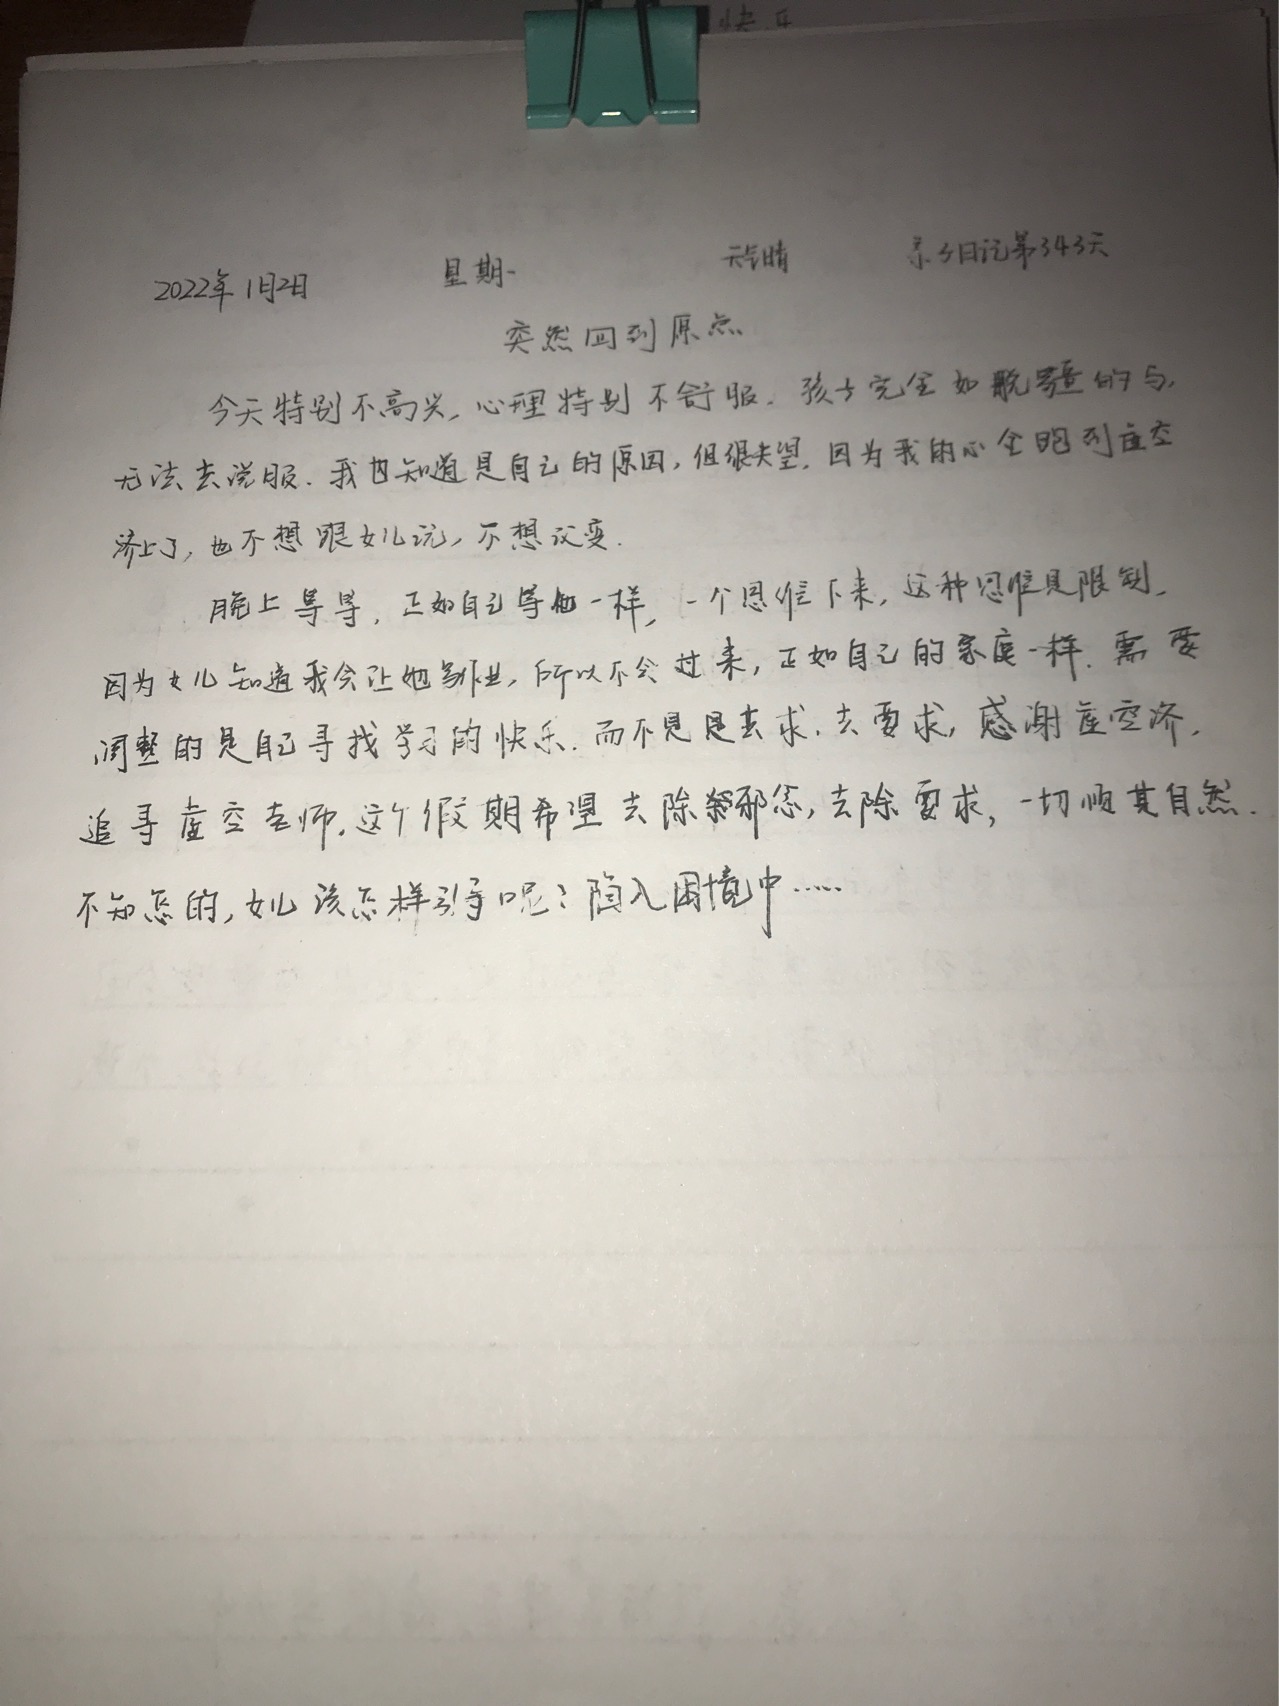 快乐
2022年1月2日 星期一 天气晴 亲子日记第343天
突然回到原点
今天特别不高兴,心理特别不舒服。孩子完全如脱疆的马,
无法去说服。我也知道是自己的原因,但很失望。因为我的心全跑到虚空
济上了,也不想跟女儿说,不想议变.
晚上等等,正如自己等他一样,一个思维下来,这种思维是限制。
因为女儿知道我会让她写作业,所以不会过来,正如自己的家庭一样。需要
调整的是自己寻找学习的快乐。而不是是去求.去要求,感谢虚空济,
追寻虚空老师。这个假期希望去除邪念,去除要求,一切顺其自然.
不知怎的,女儿该怎样引导呢?陷入困境中……